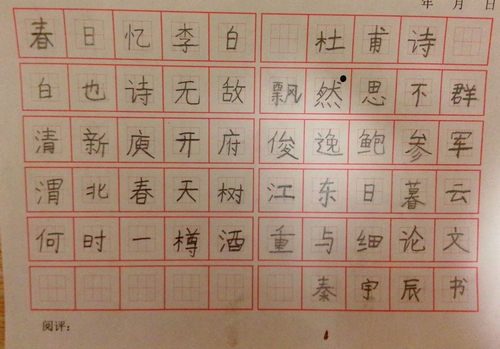 年 月 日
春日忆李白 杜甫诗
白也诗无故 飘然思不群
清新庾开府 俊逸鲍参军
渭北春天树 江东日暮云
何时一樽酒 重与细论文
秦宇辰书
阅评: